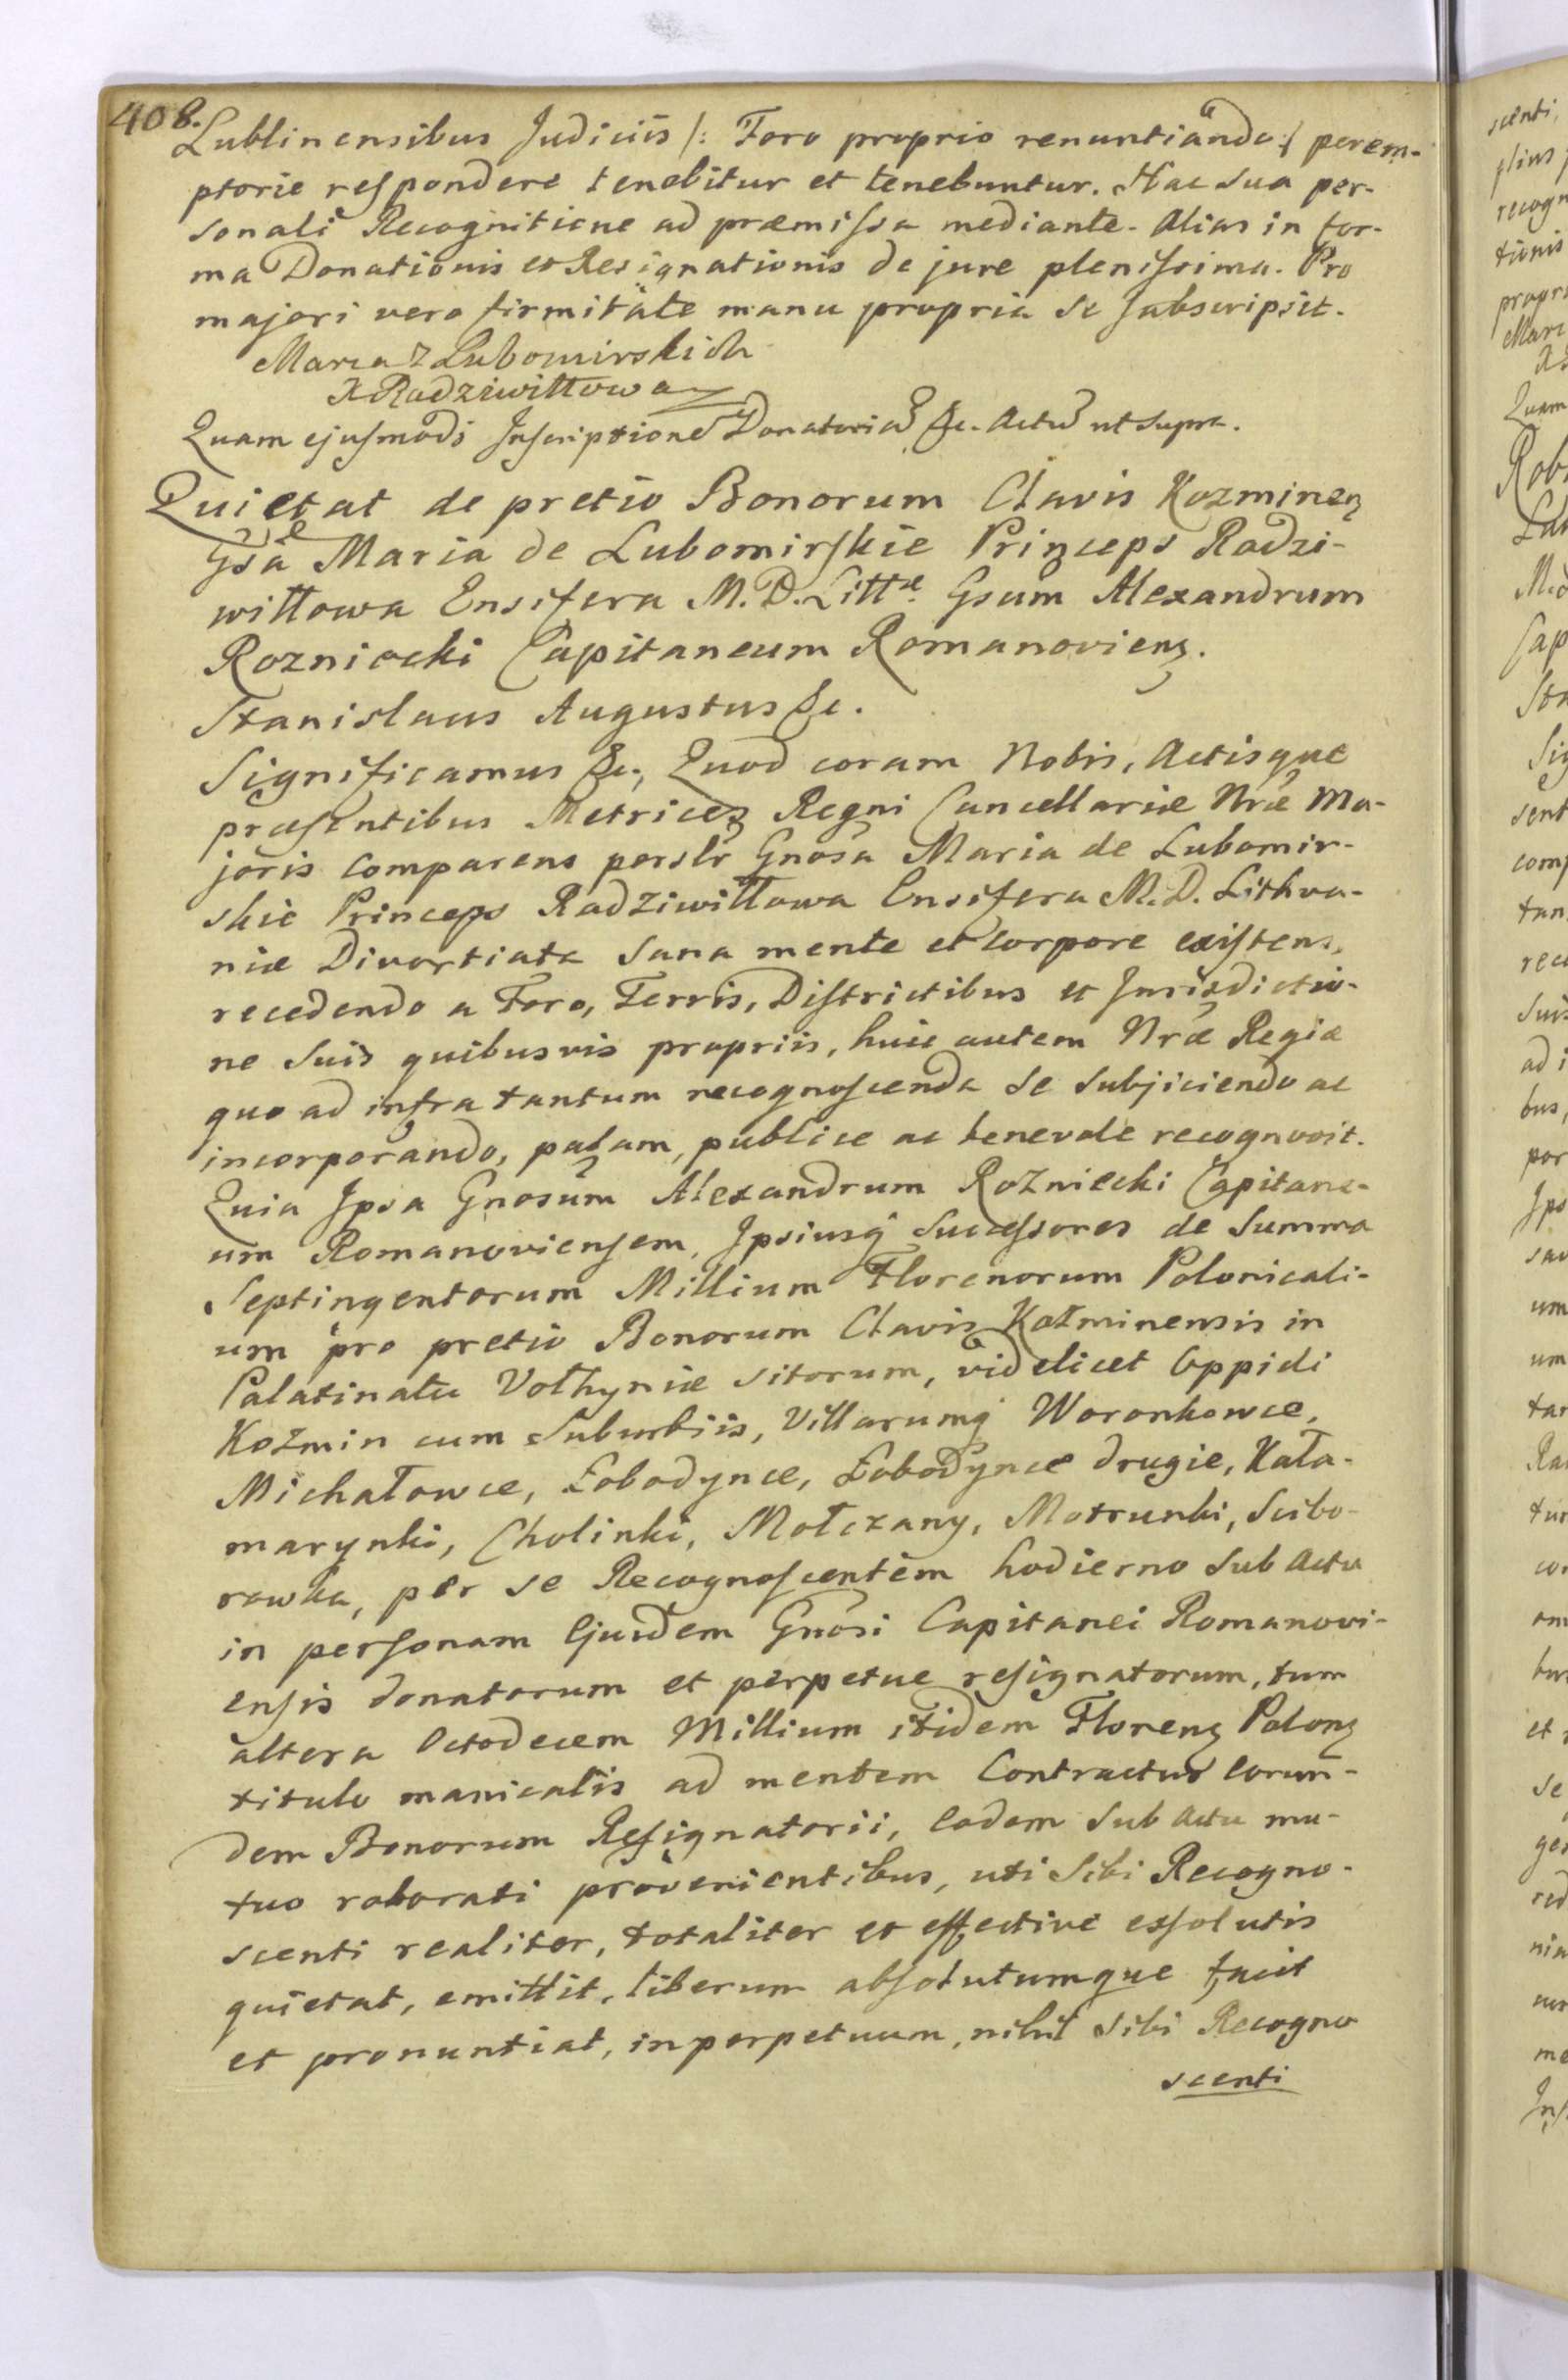 408.
Lublinensibus Judiciis /: Foro proprio renuntiando :/ perem-
ptorie respondere tenebitur et tenebuntur. Hac sua per-
sonali Recognitione ad præmissa mediante. Alias in for-
ma Donationis et Resignationis de jure plenissima. Pro
majori vero firmitate manu propria se subscripsit.
Marya z Lubomirskich
X Radziwiłłowa
Quam ejusmodi Inscriptione Donatoria &c. Actu ut supra.
Quietat de pretio Bonorum Clavis Kozminen
Gsa Maria de Lubomirskie Princeps Radzi-
wiłłowa Ensifera M. D. Litt. Gsum Alexandrum
Rozniecki Capitaneum Romanovien.
Stanislaus Augustus &c.
Significamus &c., Quod coram Nobis, Actisque
præsentibus Metrices Regni Cancellariæ Nræ Ma-
joris comparens perslr Gnosa Maria de Lubomir-
skie Princeps Radziwiłłowa Ensifera M. D. Lithva-
niæ Divortiata sana mente et corpore existens,
recedendo a Foro, Terris, Districtibus et Jurisdictio-
ne suis quibusvis propriis, huic autem Nræ Regiæ
quo ad infra tantum recognoscenda se subjiciendo ac
incorporando, palam, publice ac benevole recognovit.
Quia Ipsa Gnosum Alexandrum Rożniecki Capitane-
um Romanoviensem, Ipsiusq successores de summa
Septingentorum Millium Florenorum Polonicali-
um pro pretio Bonorum Clavis Koźminensis in
Palatinatu Volhyniæ sitorum, videlicet Oppidi
Koźmin cum Suburbiis, Villarumq Woronkowce,
Michałowce, Łobodynce, Łobodynce drugie, Kata-
marynki, Cholinki, Mołczany, Motrunki, Scibo-
rowka, per se Recognoscentem hodierno sub Actu
in personam ejusdem Gnosi Capitanei Romanovi-
ensis donatorum et perpetue resignatorum, tum
altera Octodecem Millium itidem Floren Polon
titulo manicalis ad mentem Contractus eorun-
dem Bonorum Resignatorii, eodem sub Actu mu-
tuo roborati provenientibus, uti sibi Recogno-
scenti realiter, totaliter et effective exsolutis
quietat, emittit, liberum absolutumque facit
et pronuntiat, in perpetuum, nihil sibi Recogno
scenti